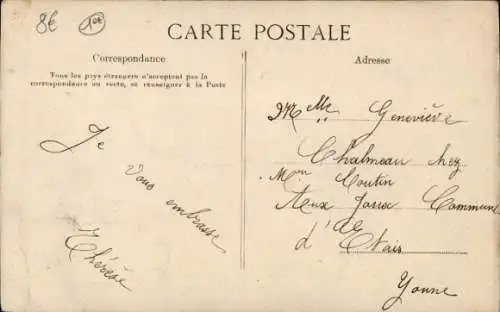 8€
CARTE POSTALE
Correspondance
Tous les pays étrangers n'acceptent pas la
correspondance au recto, se renseigner à la Poste
Je
vous embrasse
Thérèse
Adresse
Melle Geneviève
Chalmeau chez
Mon Coutin
Aux Commune
d'
Yonne